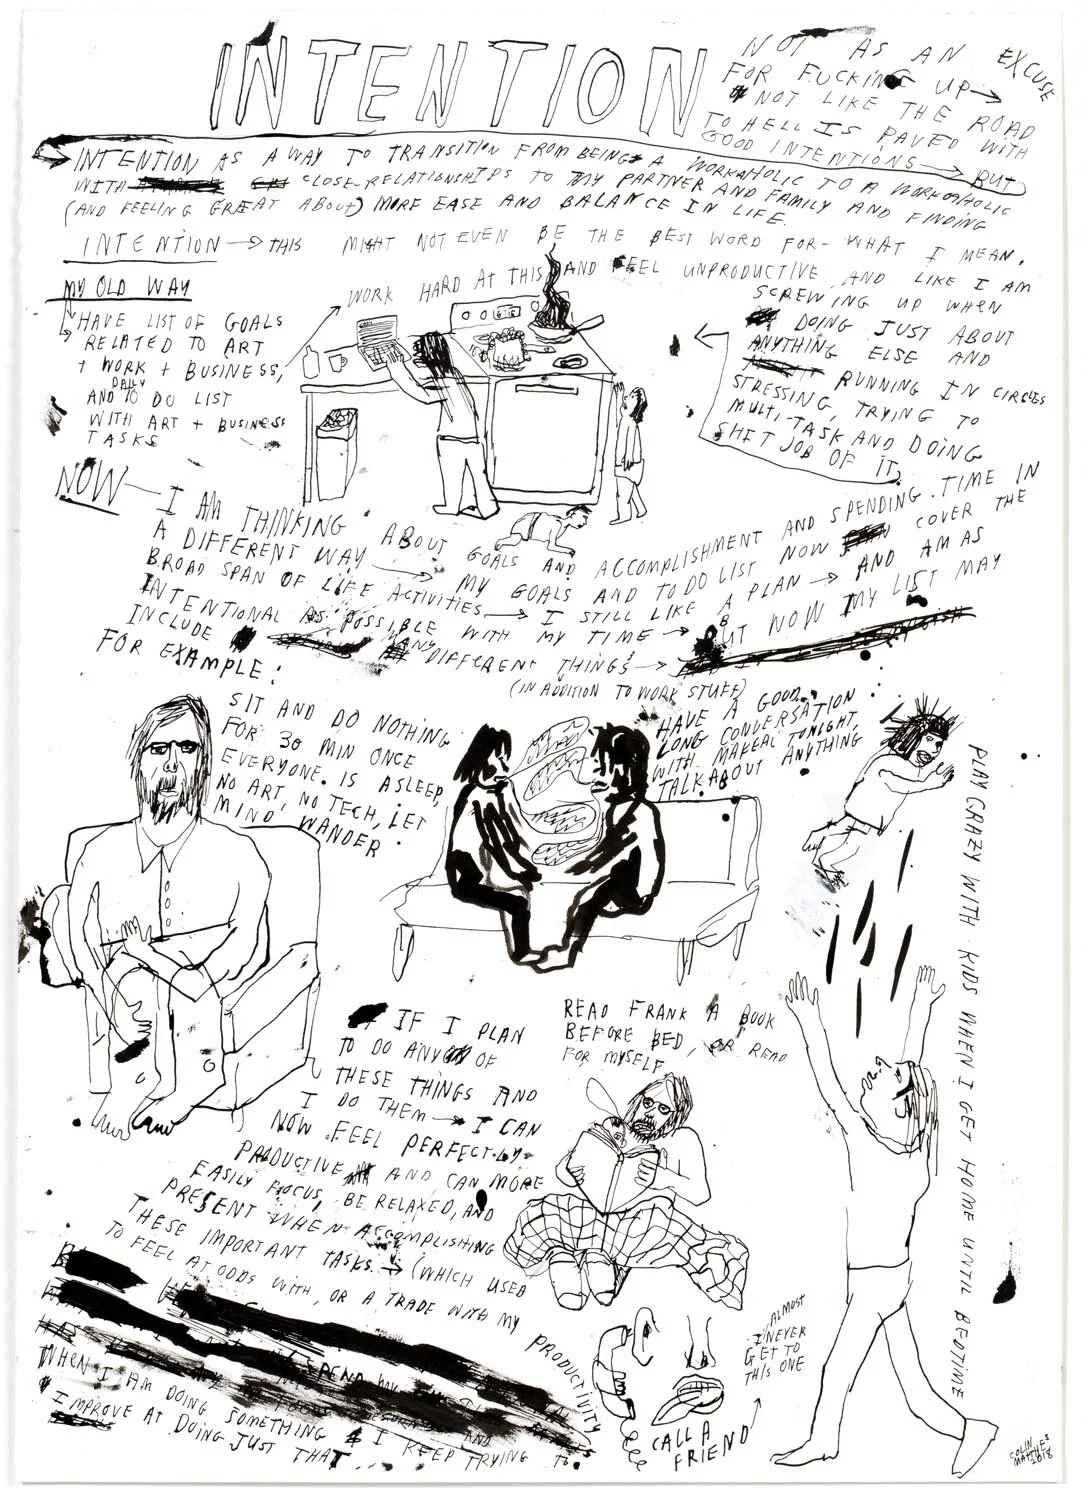 INTENTION
NOT AS AN EXCUSE
FOR FUCKING UP →
NOT LIKE THE ROAD
TO HELL IS PAVED WITH
GOOD INTENTIONS → BUT
INTENTION AS A WAY TO TRANSITION FROM BEING A WORKAHOLIC TO A WORKAHOLIC
WITH CLOSE RELATIONSHIPS TO MY PARTNER AND FAMILY AND FINDING
(AND FEELING GREAT ABOUT) MORE EASE AND BALANCE IN LIFE.
INTENTION → THIS MIGHT NOT EVEN BE THE BEST WORD FOR - WHAT I MEAN.
MY OLD WAY
HAVE LIST OF GOALS
RELATED TO ART
+ WORK + BUSINESS,
AND DAILY TO DO LIST
WITH ART + BUSINESS
TASKS
WORK HARD AT THIS AND FEEL UNPRODUCTIVE AND LIKE I AM
SCREWING UP WHEN
DOING JUST ABOUT
ANYTHING ELSE AND
RUNNING IN CIRCLES
STRESSING, TRYING TO
MULTI-TASK AND DOING
SHIT JOB OF IT.
NOW — I AM THINKING ABOUT GOALS AND ACCOMPLISHMENT AND SPENDING TIME IN
A DIFFERENT WAY → MY GOALS AND TO DO LIST NOW COVER THE
BROAD SPAN OF LIFE ACTIVITIES → I STILL LIKE A PLAN → AND AM AS
INTENTIONAL AS POSSIBLE WITH MY TIME → BUT NOW MY LIST MAY
INCLUDE MANY DIFFERENT THINGS →
(IN ADDITION TO WORK STUFF)
FOR EXAMPLE:
SIT AND DO NOTHING
FOR 30 MIN ONCE
EVERYONE. IS ASLEEP,
NO ART, NO TECH, LET
MIND WANDER
HAVE A GOOD
LONG CONVERSATION
WITH MAKEAL TONIGHT,
TALK ABOUT ANYTHING
PLAY CRAZY WITH KIDS WHEN I GET HOME UNTIL BEDTIME
IF I PLAN
TO DO ANY OF
THESE THINGS AND
I DO THEM → I CAN
NOW FEEL PERFECTLY
PRODUCTIVE AND CAN MORE
EASILY FOCUS, BE RELAXED, AND
PRESENT WHEN ACCOMPLISHING
THESE IMPORTANT TASKS → (WHICH USED
TO FEEL AT ODDS WITH, OR A TRADE WITH MY PRODUCTIVITY
READ FRANK A BOOK
BEFORE BED, OR READ
FOR MYSELF
WHEN I AM DOING SOMETHING I KEEP TRYING TO
IMPROVE AT DOING JUST THAT...
CALL A
FRIEND
ALMOST
I NEVER
GET TO
THIS ONE
COLIN
MATTHES
2018